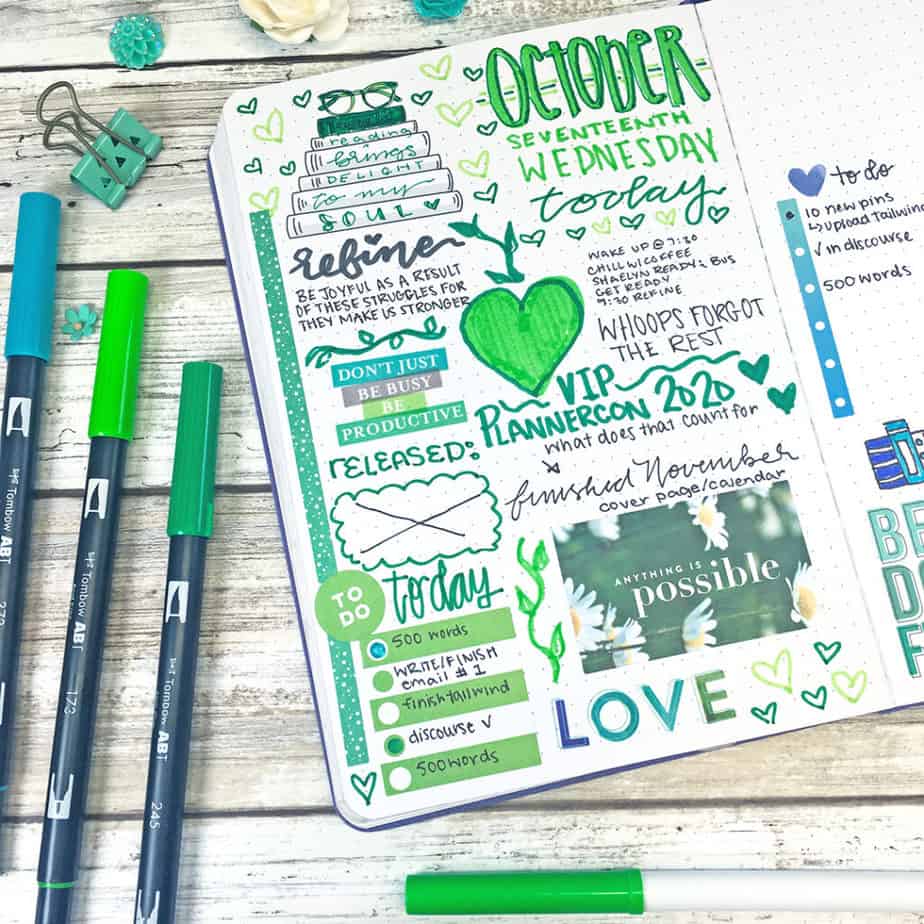 OCTOBER
SEVENTEENTH
WEDNESDAY
today
reading
brings
DELIGHT
to my
SOUL
refine
BE JOYFUL AS A RESULT
OF THESE STRUGGLES FOR
THEY MAKE US STRONGER
WAKE UP @ 7:30
CHILL W/COFFEE
SHAELYN READY & BUS
GET READY
9:30 REFINE
WHOOPS FORGOT
THE REST
DON'T JUST
BE BUSY
BE
PRODUCTIVE
VIP
PLANNERCON 2020
what does that count for
RELEASED:
finished November
cover page/calendar
ANYTHING IS
possible
TO
DO
today
500 words
WRITE/FINISH
email #1
finish tailwind
discourse ✓
500 words
LOVE
to do
10 new pins
↳ Upload Tailwind
✓ in discourse
500 words
BE
DO
F
Tombow ABT
Tombow ABT
173
Tombow ABT
245